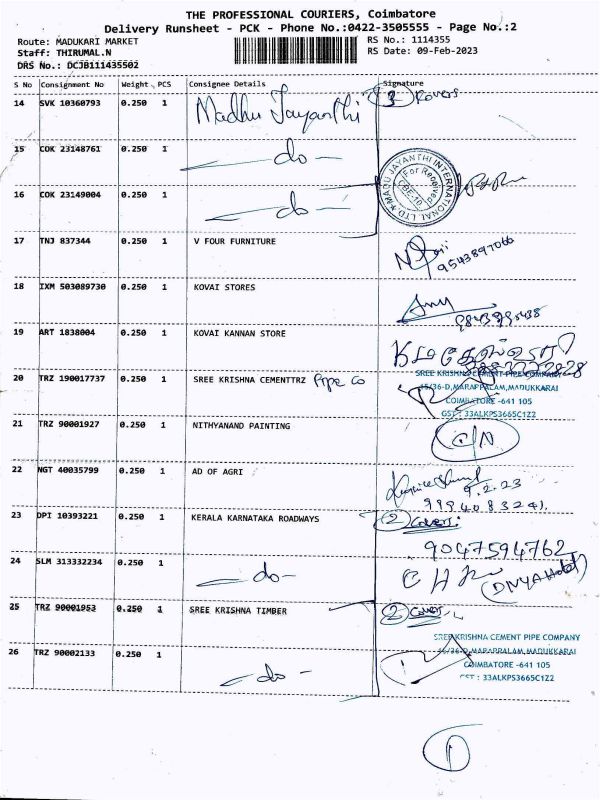 THE PROFESSIONAL COURIERS, Coimbatore
Delivery Runsheet - PCK - Phone No.:0422-3505555 - Page No.:2
Route: MADUKARI MARKET
Staff: THIRUMAL.N
DRS No.: DCJB111435502
RS No.: 1114355
RS Date: 09-Feb-2023
S No Consignment No Weight PCS Consignee Details Signature
14 SVK 10360793 0.250 1 Madhu Jayanthi 3 Covers
15 COK 23148761 0.250 1 do
16 COK 23149004 0.250 1 do
MADU JAYANTHI INTERNATIONAL LTD
For Received
CBE-10
17 TNJ 837344 0.250 1 V FOUR FURNITURE
9543897066
18 IXM 503089730 0.250 1 KOVAI STORES
19 ART 1838004 0.250 1 KOVAI KANNAN STORE
20 TRZ 190017737 0.250 1 SREE KRISHNA CEMENTTRZ Pipe Co
SREE KRISHNA CEMENT PIPE COMPANY
46/36-D,MARAPPALAM,MADUKKARAI
COIMBATORE -641 105
GST : 33ALKPS3665C1Z2
21 TRZ 90001927 0.250 1 NITHYANAND PAINTING
C/N
22 NGT 40035799 0.250 1 AD OF AGRI
9.2.23
9994083241.
23 DPI 10393221 0.250 1 KERALA KARNATAKA ROADWAYS 2 Covers.
9047594762
24 SLM 313332234 0.250 1 do
25 TRZ 90001953 0.250 1 SREE KRISHNA TIMBER 2 Covers
SREE KRISHNA CEMENT PIPE COMPANY
46/36-D,MARAPPALAM,MADUKKARAI
COIMBATORE -641 105
GST : 33ALKPS3665C1Z2
26 TRZ 90002133 0.250 1 do
1